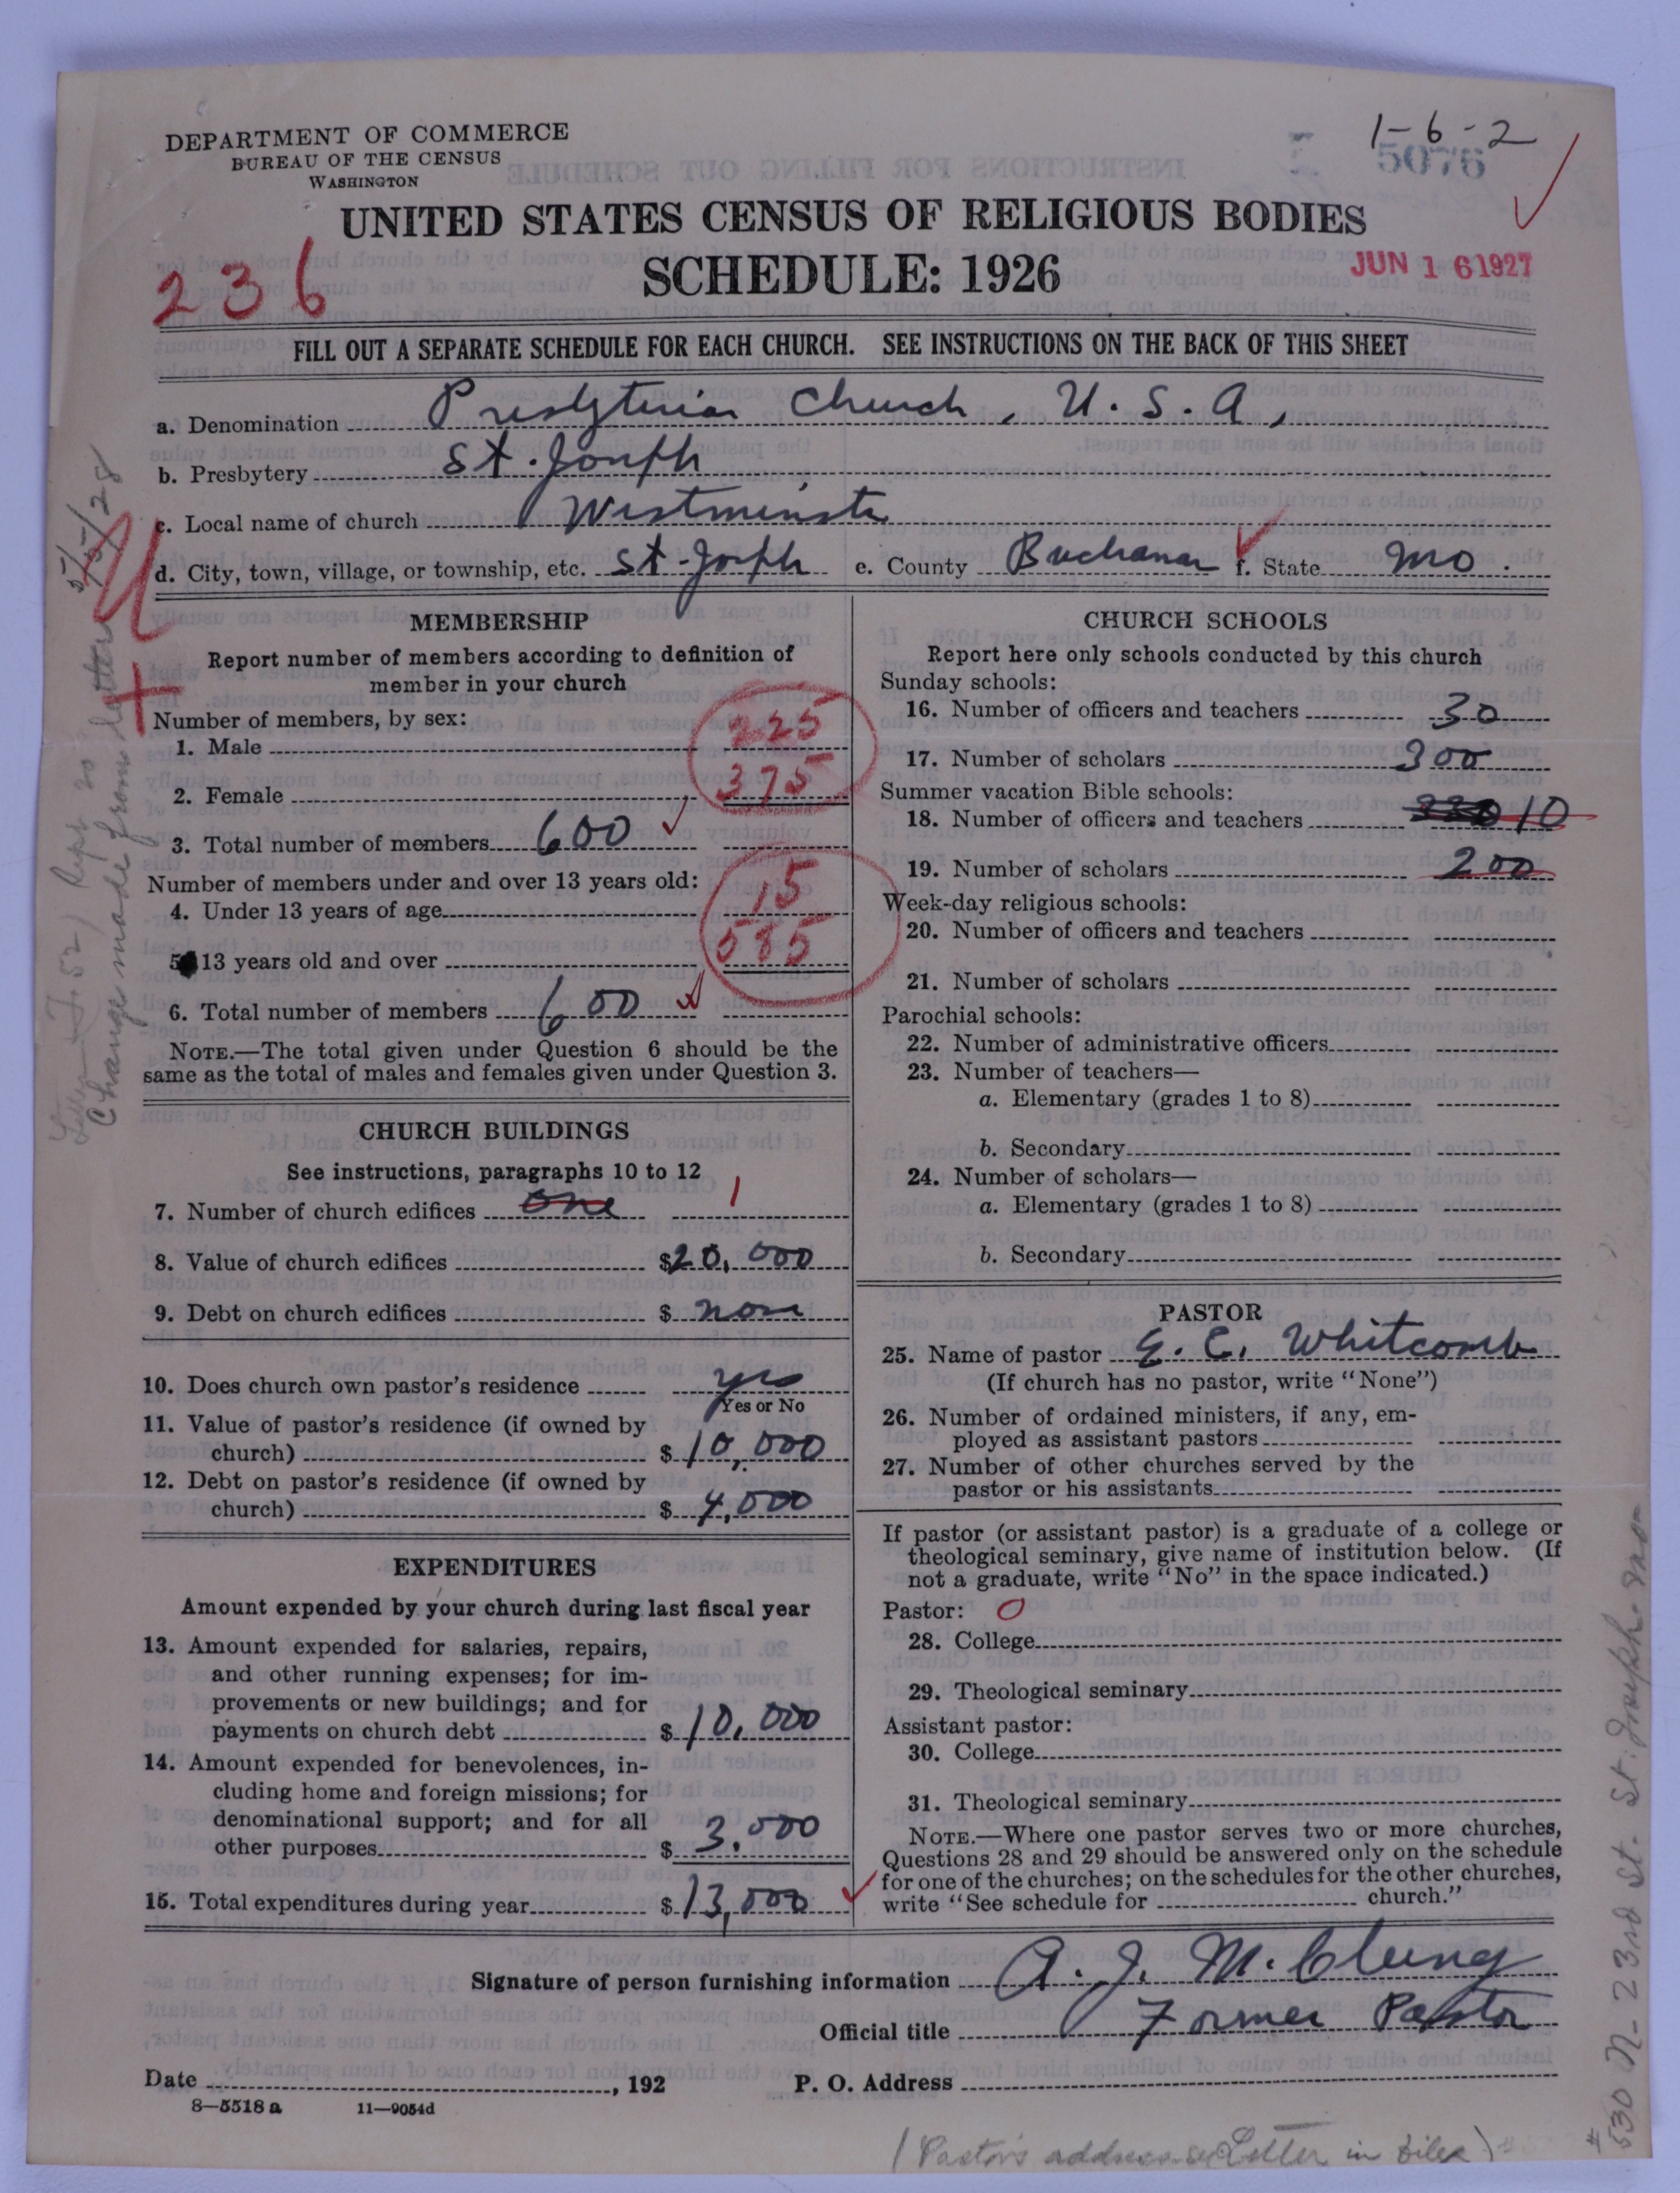 DEPARTMENT OF COMMERCE
BUREAU OF THE CENSUS
WASHINGTON
1-6-2
5076
UNITED STATES CENSUS OF RELIGIOUS BODIES
SCHEDULE: 1926
236
JUN 16 1927
FILL OUT A SEPARATE SCHEDULE FOR EACH CHURCH. SEE INSTRUCTIONS ON THE BACK OF THIS SHEET
a. Denomination Presbyterian Church, U.S.A,
b. Presbytery St. Joseph
c. Local name of church Westminster
d. City, town, village, or township, etc. St. Joseph e. County Buchanan f. State Mo.
MEMBERSHIP
Report number of members according to definition of
member in your church
Number of members, by sex:
1. Male 225
2. Female 375
3. Total number of members 600
Number of members under and over 13 years old:
4. Under 13 years of age 15
5. 13 years old and over 585
6. Total number of members 600
NOTE.—The total given under Question 6 should be the
same as the total of males and females given under Question 3.
CHURCH BUILDINGS
See instructions, paragraphs 10 to 12
7. Number of church edifices one 1
8. Value of church edifices $20,000
9. Debt on church edifices $ none
10. Does church own pastor's residence yes
Yes or No
11. Value of pastor's residence (if owned by
church) $10,000
12. Debt on pastor's residence (if owned by
church) $ 4,000
EXPENDITURES
Amount expended by your church during last fiscal year
13. Amount expended for salaries, repairs,
and other running expenses; for im-
provements or new buildings; and for
payments on church debt $10,000
14. Amount expended for benevolences, in-
cluding home and foreign missions; for
denominational support; and for all
other purposes $ 3,000
15. Total expenditures during year $13,000
CHURCH SCHOOLS
Report here only schools conducted by this church
Sunday schools:
16. Number of officers and teachers 30
17. Number of scholars 300
Summer vacation Bible schools:
18. Number of officers and teachers 10
19. Number of scholars 200
Week-day religious schools:
20. Number of officers and teachers
21. Number of scholars
Parochial schools:
22. Number of administrative officers
23. Number of teachers—
a. Elementary (grades 1 to 8)
b. Secondary
24. Number of scholars—
a. Elementary (grades 1 to 8)
b. Secondary
PASTOR
25. Name of pastor E. C. Whitcomb
(If church has no pastor, write "None")
26. Number of ordained ministers, if any, em-
ployed as assistant pastors
27. Number of other churches served by the
pastor or his assistants
If pastor (or assistant pastor) is a graduate of a college or
theological seminary, give name of institution below. (If
not a graduate, write "No" in the space indicated.)
Pastor: O
28. College
29. Theological seminary
Assistant pastor:
30. College
31. Theological seminary
NOTE.—Where one pastor serves two or more churches,
Questions 28 and 29 should be answered only on the schedule
for one of the churches; on the schedules for the other churches,
write "See schedule for church."
Signature of person furnishing information A. J. McClung
Official title Former Pastor
Date , 192 P. O. Address
8—5518 a 11—9054d
(Pastor's address Letter in files)
#530 N- 23rd St. St. Joseph. Mo-
Change made from letter 5/5/28